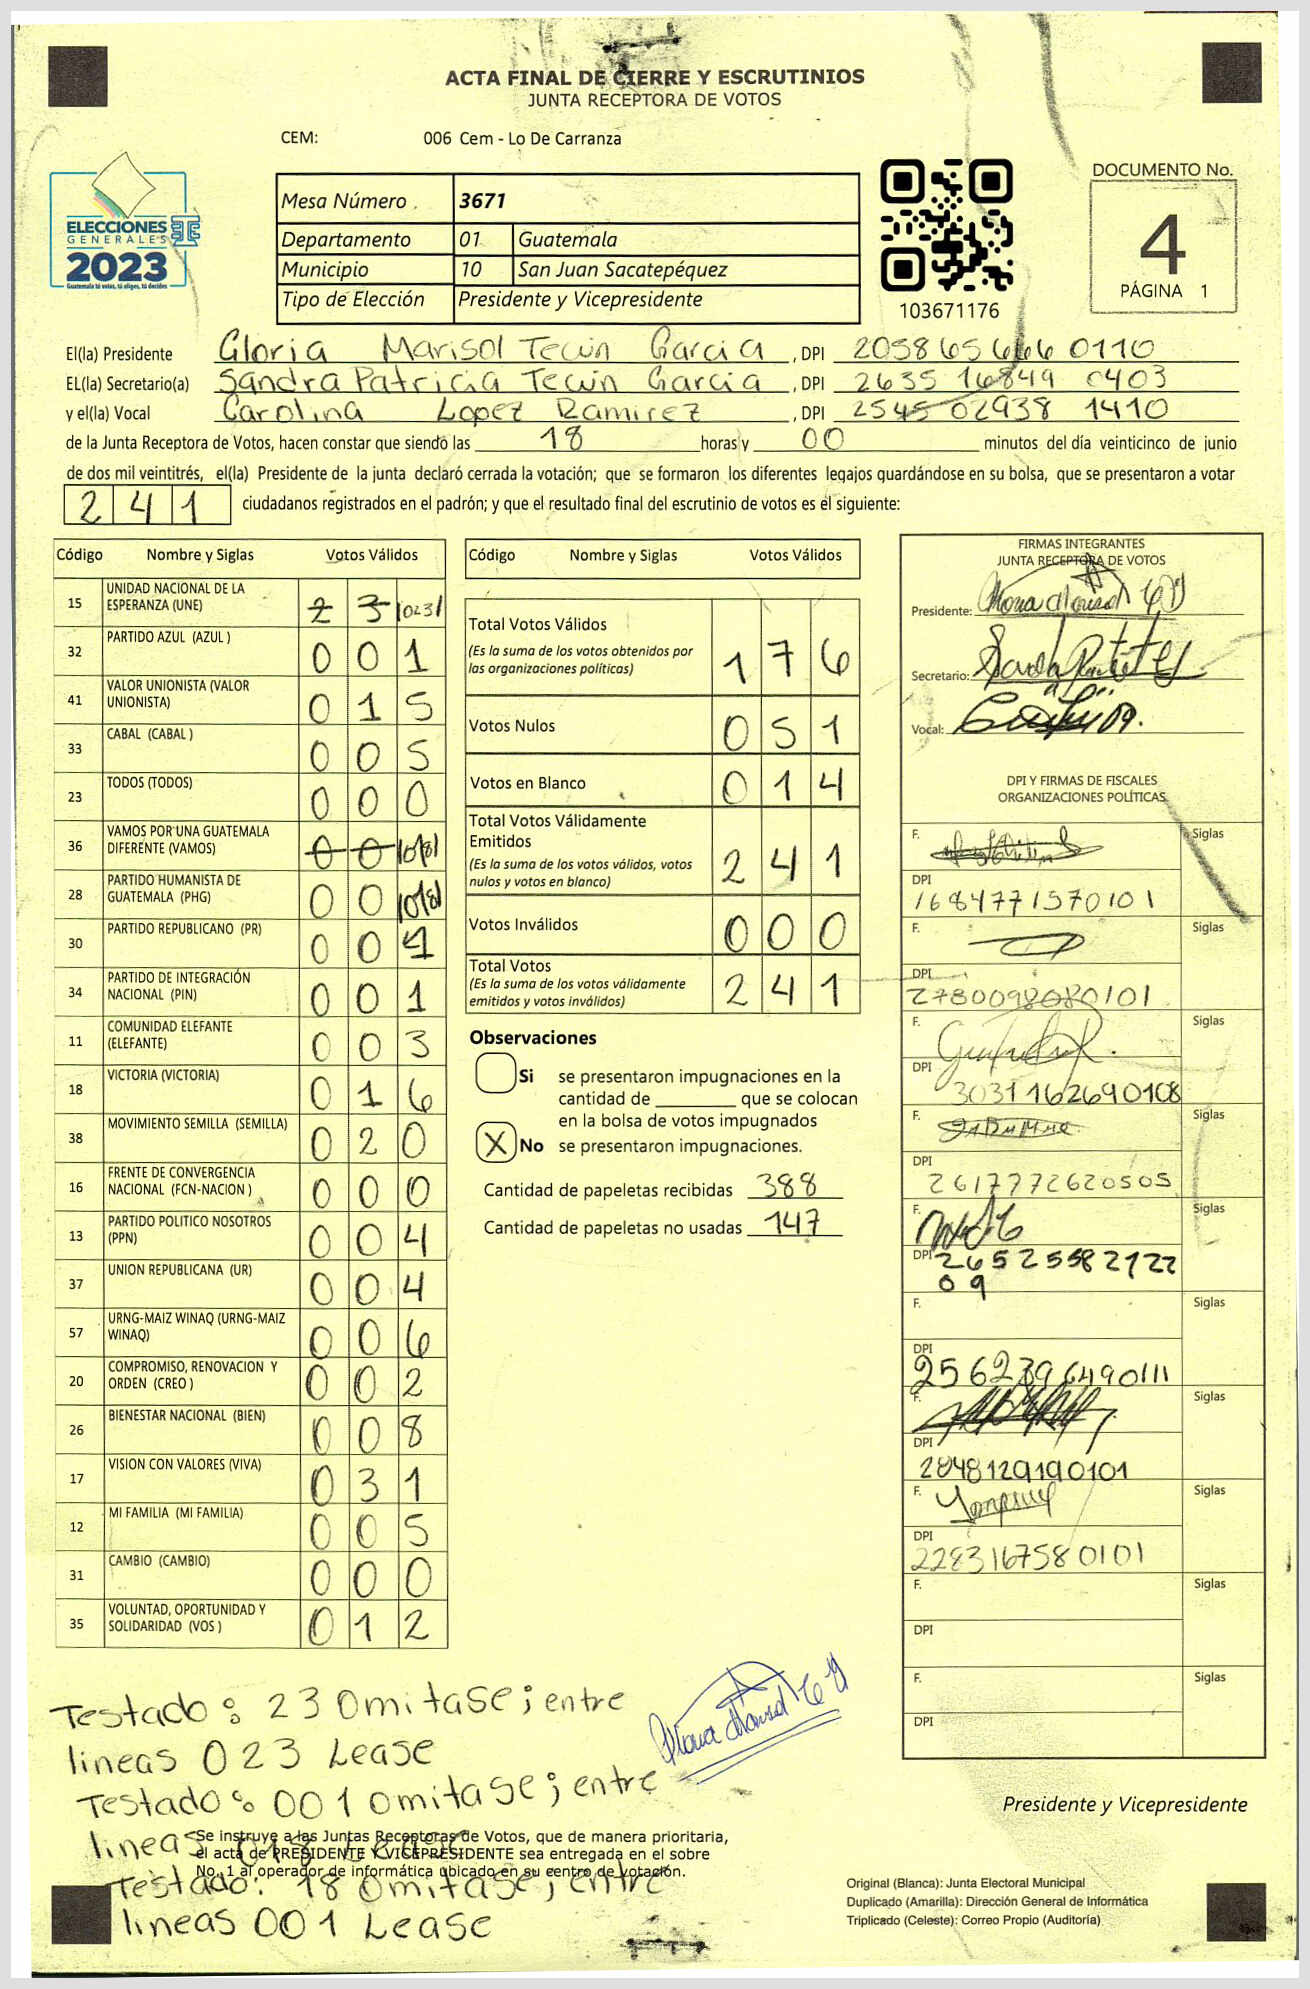 ACTA FINAL DE CIERRE Y ESCRUTINIOS
JUNTA RECEPTORA DE VOTOS
CEM: 006 Cem - Lo De Carranza
ELECCIONES
GENERALES
2023
Guatemala tú votas, tú eliges, tú decides
Mesa Número 3671
Departamento 01 Guatemala
Municipio 10 San Juan Sacatepéquez
Tipo de Elección Presidente y Vicepresidente
103671176
DOCUMENTO No.
4
PÁGINA 1
El(la) Presidente Gloria Marisol Tecun Garcia, DPI
EL(la) Secretario(a) Sandra Patricia Tecun Garcia, DPI 2635 16849 0403
y el(la) Vocal Carolina Lopez Ramirez, DPI 2545 02938 1410
de la Junta Receptora de Votos, hacen constar que siendo las 18 horas y 00 minutos del día veinticinco de junio
de dos mil veintitrés, el(la) Presidente de la junta declaró cerrada la votación; que se formaron los diferentes legajos guardándose en su bolsa, que se presentaron a votar
241 ciudadanos registrados en el padrón; y que el resultado final del escrutinio de votos es el siguiente:
Código Nombre y Siglas Votos Válidos
15 UNIDAD NACIONAL DE LA ESPERANZA (UNE) 2 3 /023/
32 PARTIDO AZUL (AZUL ) 0 0 1
41 VALOR UNIONISTA (VALOR UNIONISTA) 0 1 5
33 CABAL (CABAL ) 0 0 5
23 TODOS (TODOS) 0 0 0
36 VAMOS POR UNA GUATEMALA DIFERENTE (VAMOS) 0 0
28 PARTIDO HUMANISTA DE GUATEMALA (PHG) 0 0
30 PARTIDO REPUBLICANO (PR) 0 0 1
34 PARTIDO DE INTEGRACIÓN NACIONAL (PIN) 0 0 1
11 COMUNIDAD ELEFANTE (ELEFANTE) 0 0 3
18 VICTORIA (VICTORIA) 0 1 6
38 MOVIMIENTO SEMILLA (SEMILLA) 0 2 0
16 FRENTE DE CONVERGENCIA NACIONAL (FCN-NACION ) 0 0 0
13 PARTIDO POLITICO NOSOTROS (PPN) 0 0 4
37 UNION REPUBLICANA (UR) 0 0 4
57 URNG-MAIZ WINAQ (URNG-MAIZ WINAQ) 0 0 6
20 COMPROMISO, RENOVACION Y ORDEN (CREO ) 0 0 2
26 BIENESTAR NACIONAL (BIEN) 0 0 8
17 VISION CON VALORES (VIVA) 0 3 1
12 MI FAMILIA (MI FAMILIA) 0 0 5
31 CAMBIO (CAMBIO) 0 0 0
35 VOLUNTAD, OPORTUNIDAD Y SOLIDARIDAD (VOS ) 0 1 2
Código Nombre y Siglas Votos Válidos
Total Votos Válidos
(Es la suma de los votos obtenidos por
las organizaciones políticas) 1 7 6
Votos Nulos 0 5 1
Votos en Blanco 0 1 4
Total Votos Válidamente
Emitidos
(Es la suma de los votos válidos, votos
nulos y votos en blanco) 2 4 1
Votos Inválidos 0 0 0
Total Votos
(Es la suma de los votos válidamente
emitidos y votos inválidos) 2 4 1
Observaciones
Si se presentaron impugnaciones en la
cantidad de ________ que se colocan
en la bolsa de votos impugnados
X No se presentaron impugnaciones.
Cantidad de papeletas recibidas 388
Cantidad de papeletas no usadas 147
FIRMAS INTEGRANTES
JUNTA RECEPTORA DE VOTOS
Presidente:
Secretario:
Vocal:
DPI Y FIRMAS DE FISCALES
ORGANIZACIONES POLÍTICAS
F. Siglas
DPI
1684771570101
F. Siglas
DPI
2780098080101
F. Siglas
DPI
3031162690108
F. Siglas
DPI
2617772620505
F. Siglas
DPI 26525582122
09
F. Siglas
DPI
2562396490111
F. Siglas
DPI
2848129190101
F. Siglas
DPI
2283167580101
F. Siglas
DPI
F. Siglas
DPI
Testado: 23 Omitase; entre
lineas 023 Lease
Testado: 001 Omitase; entre
lineas 018 Lease
Testado: 18 Omitase; entre
lineas 001 Lease
Se instruye a las Juntas Receptoras de Votos, que de manera prioritaria,
el acta de PRESIDENTE Y VICEPRESIDENTE sea entregada en el sobre
No. 1 al operador de informática ubicado en su centro de votación.
Presidente y Vicepresidente
Original (Blanca): Junta Electoral Municipal
Duplicado (Amarilla): Dirección General de Informática
Triplicado (Celeste): Correo Propio (Auditoría)